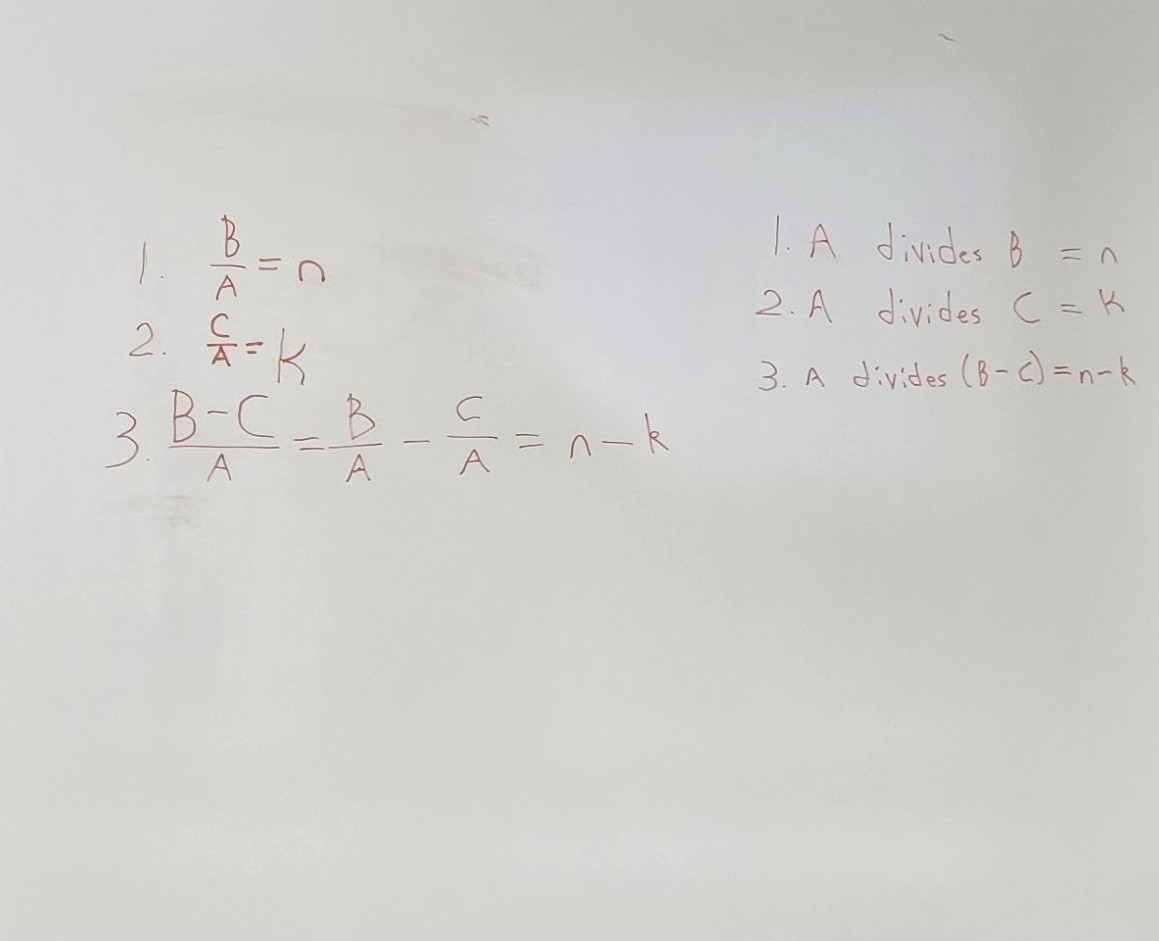 1. B/A = n
2. C/A = K
3. B-C/A = B/A - C/A = n - k
1. A divides B = n
2. A divides C = K
3. A divides (B-C) = n-k